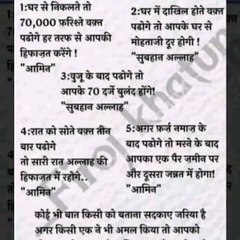 1:घर से निकलते तो
70,000 फ़रिश्ते वक़्त
पढोगे हर तरफ से आपकी
हिफाज़त करेंगे !
"आमिन"
2:घर में दाखिल होते वक़्त
पढोगे तो आपके घर से
मोहताजी दूर होगी !
"सुबहान अल्लाह"
3:वुजू के बाद पढोगे तो
आपके 70 दर्जे बुलंद होंगे!
"सुबहान अल्लाह"
4:रात को सोते वक़्त तीन
बार पढोगे
तो सारी रात अल्लाह की
हिफाज़त में रहोगे..
"आमिन"
5:अगर फ़र्ज़ नमाज़ के
बाद पढोगे तो मरने के बाद
आपका एक पैर ज़मीन पर
और दूसरा जन्नत में होगा!
"आमिन"
कोई भी बात किसी को बताना सदकाए जरिया है
अगर किसी एक ने भी अमल किया तो आपको